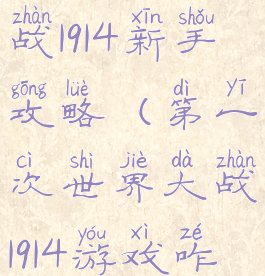 zhàn xīn shǒu
战1914新手
gōng lüè dì yī
攻略（第一
cì shì jiè dà zhàn
次世界大战
yóu xì zé
1914游戏咋